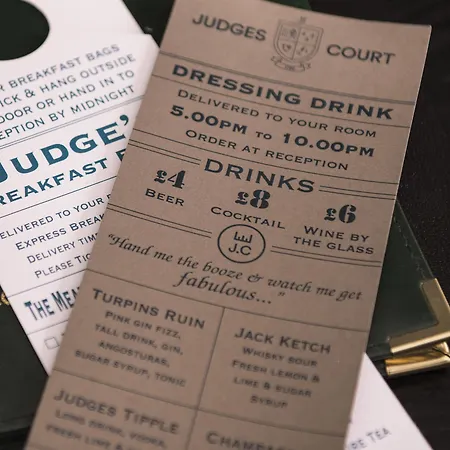 JUDGES COURT
DRESSING DRINK
DELIVERED TO YOUR ROOM
5.00PM TO 10.00PM
ORDER AT RECEPTION
DRINKS
£4
BEER
£8
COCKTAIL
£6
WINE BY
THE GLASS
J.C
"Hand me the booze & watch me get
fabulous..."
TURPINS RUIN
PINK GIN FIZZ,
TALL DRINK, GIN,
ANGOSTURAS,
SUGAR SYRUP, TONIC
JACK KETCH
WHISKY SOUR
FRESH LEMON &
LIME & SUGAR
SYRUP
JUDGES TIPPLE
LONG DRINK, VODKA,
FRESH LIME &
BREAKFAST BAGS
& HANG OUTSIDE
OR HAND IN TO
BY MIDNIGHT
JUDGE'
DELIVERED TO YOUR
EXPRESS
DELIVERY
PLEASE
THE
TEA